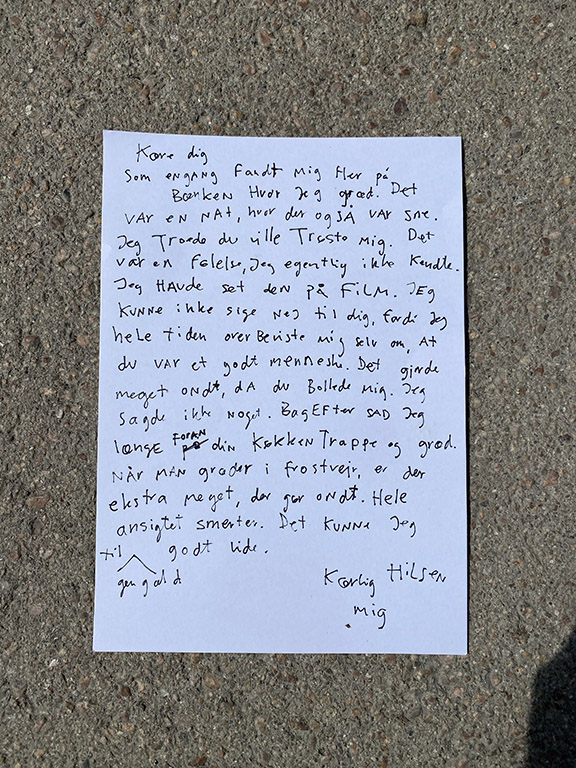 Kære dig
Som ENGANG FANDT MIG Her på
Bænken Hvor Jeg græd. Det
VAR EN NAT, hvor der også VAR sne.
Jeg Troede du ville Trøste Mig. Det
var en følelse, Jeg egentlig ikke kendte.
Jeg HAVDE set den PÅ FILM. JEG
KUNNE ikke sige Nej til dig, fordi Jeg
hele tiden overbeviste Mig selv om, At
du VAR et godt menneske. Det gjorde
meget ONDT, DA du Bollede Mig. Jeg
sagde ikke Noget. BagEfter SAD Jeg
længe FORAN din KøkkenTrappe og græd.
NÅR MAN græder i frostvejr, er der
ekstra meget, der gør ONDT. Hele
ansigtet smerter. Det KUNNE Jeg
til gengæld godt lide.
Kærlig HILSEN
Mig